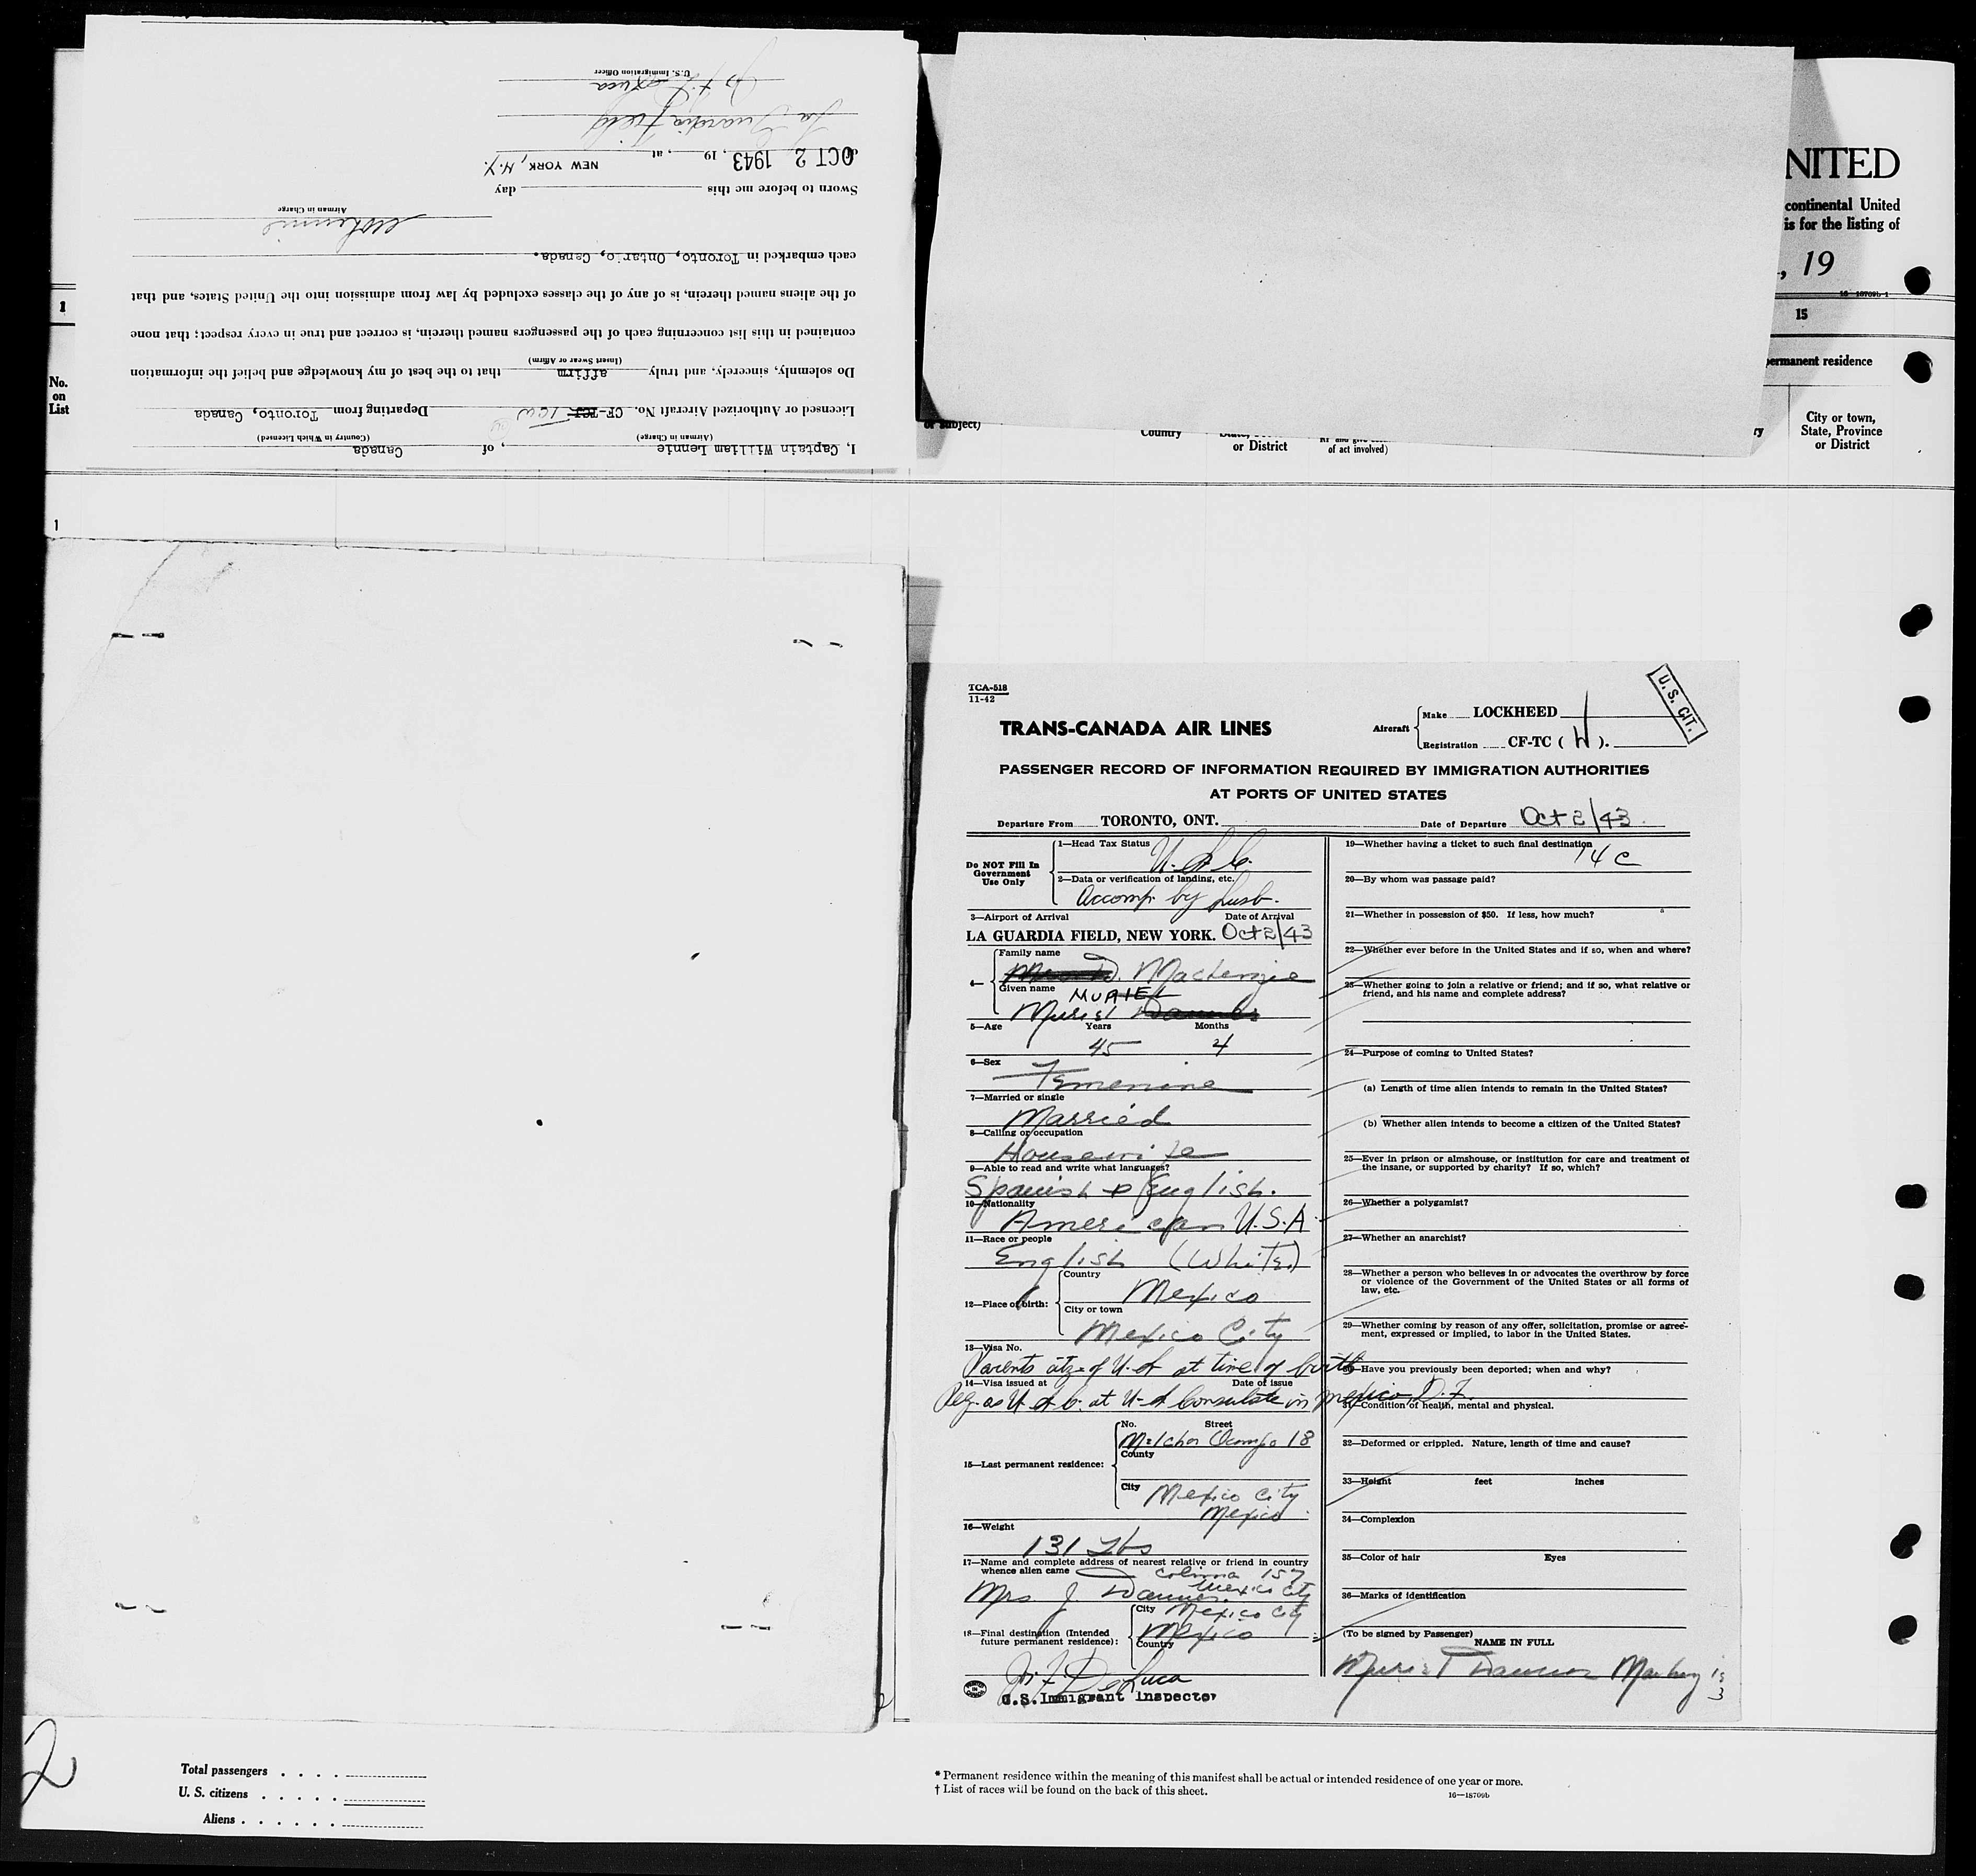 I, Captain William Lennie, of Canada
(Airman in Charge) (Country in Which Licensed)
Licensed or Authorized Aircraft No. CF-TCW Departing from Toronto, Canada
Do solemnly, sincerely, and truly affirm that to the best of my knowledge and belief the information
(Insert Swear or Affirm)
contained in this list concerning each of the passengers named therein, is correct and true in every respect; that none
of the aliens named therein, is of any of the classes excluded by law from admission into the United States, and that
each embarked in Toronto, Ontario, Canada.
Airman in Charge
Sworn to before me this day
of OCT 2 1943, 19 , at NEW YORK, N.Y.
La Guardia Field
U.S. Immigration Officer
NITED
continental United
is for the listing of
, 19
16-18709b-1
1
15
ermanent residence
No.
on
List
or subject)
Country
or District
of act involved)
ry
City or town,
State, Province
or District
1
TCA-518
11-42
TRANS-CANADA AIR LINES
Aircraft
Make LOCKHEED
Registration CF-TC ( W ).
U. S. CIT.
PASSENGER RECORD OF INFORMATION REQUIRED BY IMMIGRATION AUTHORITIES
AT PORTS OF UNITED STATES
Departure From TORONTO, ONT. Date of Departure Oct 2/43
Do NOT Fill In
Government
Use Only
1—Head Tax Status U.S.C.
2—Data or verification of landing, etc.
Accomp. by husb.
3—Airport of Arrival Date of Arrival
LA GUARDIA FIELD, NEW YORK. Oct 2/43
4—
Family name
D. Mackenzie
Given name MURIEL
Muriel
5—Age Years Months
45 4
6—Sex
Femenine
7—Married or single
Married
8—Calling or occupation
Housewife
9—Able to read and write what languages?
Spanish & English.
10—Nationality
American U.S.A.
11—Race or people
English (White)
12—Place of birth:
Country
Mexico
City or town
Mexico City
13—Visa No.
Parents ctz of U.S. at time of birth
14—Visa issued at Date of issue
Reg. as U.S.C. at U.S. Consulate in Mexico D.F.
15—Last permanent residence:
No. Street
Melchor Ocampo 18
County
City Mexico City
Mexico
16—Weight
131 Lbs
17—Name and complete address of nearest relative or friend in country
whence alien came Colima 157
Mrs J. Mexico City
18—Final destination (Intended
future permanent residence):
City Mexico City
Mexico
Country
De Luca
U.S. Immigrant Inspector
19—Whether having a ticket to such final destination
14 C
20—By whom was passage paid?
21—Whether in possession of $50. If less, how much?
22—Whether ever before in the United States and if so, when and where?
23—Whether going to join a relative or friend; and if so, what relative or
friend, and his name and complete address?
24—Purpose of coming to United States?
(a) Length of time alien intends to remain in the United States?
(b) Whether alien intends to become a citizen of the United States?
25—Ever in prison or almshouse, or institution for care and treatment of
the insane, or supported by charity? If so, which?
26—Whether a polygamist?
27—Whether an anarchist?
28—Whether a person who believes in or advocates the overthrow by force
or violence of the Government of the United States or all forms of
law, etc.
29—Whether coming by reason of any offer, solicitation, promise or agree-
ment, expressed or implied, to labor in the United States.
30—Have you previously been deported; when and why?
31—Condition of health, mental and physical.
32—Deformed or crippled. Nature, length of time and cause?
33—Height feet inches
34—Complexion
35—Color of hair Eyes
36—Marks of identification
(To be signed by Passenger)
NAME IN FULL
2
Total passengers . . . .
U. S. citizens . . . . .
Aliens . . . . . .
* Permanent residence within the meaning of this manifest shall be actual or intended residence of one year or more.
† List of races will be found on the back of this sheet.
16—18709b